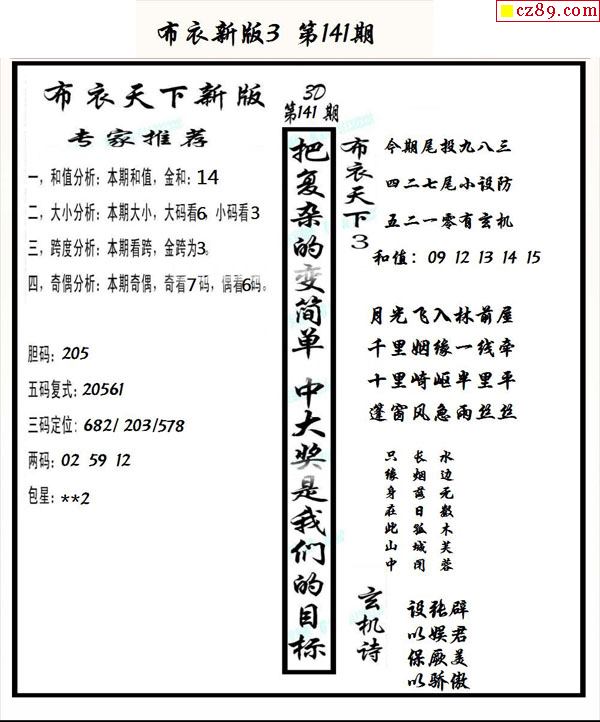 cz89.com
布衣新版3 第141期
布衣天下新版
专家推荐
一，和值分析：本期和值，金和：14
二，大小分析：本期大小，大码看6，小码看3
三，跨度分析：本期看跨，金跨为3。
四，奇偶分析：本期奇偶，奇看7码，偶看6码。
胆码：205
五码复式：20561
三码定位：682/203/578
两码：02 59 12
包星：**2
3D
第141期
把复杂的变简单 中大奖是我们的目标
布衣天下3
今期尾投九八三
四二七尾小设防
五二一零有玄机
和值：09 12 13 14 15
月光飞入林前屋
千里姻缘一线牵
十里崎岖半里平
蓬窗风急雨丝丝
只缘身在此山中
长烟落日孤城闭
水边无数木芙蓉
玄机诗
设张辟
以娱君
保厥美
以骄傲